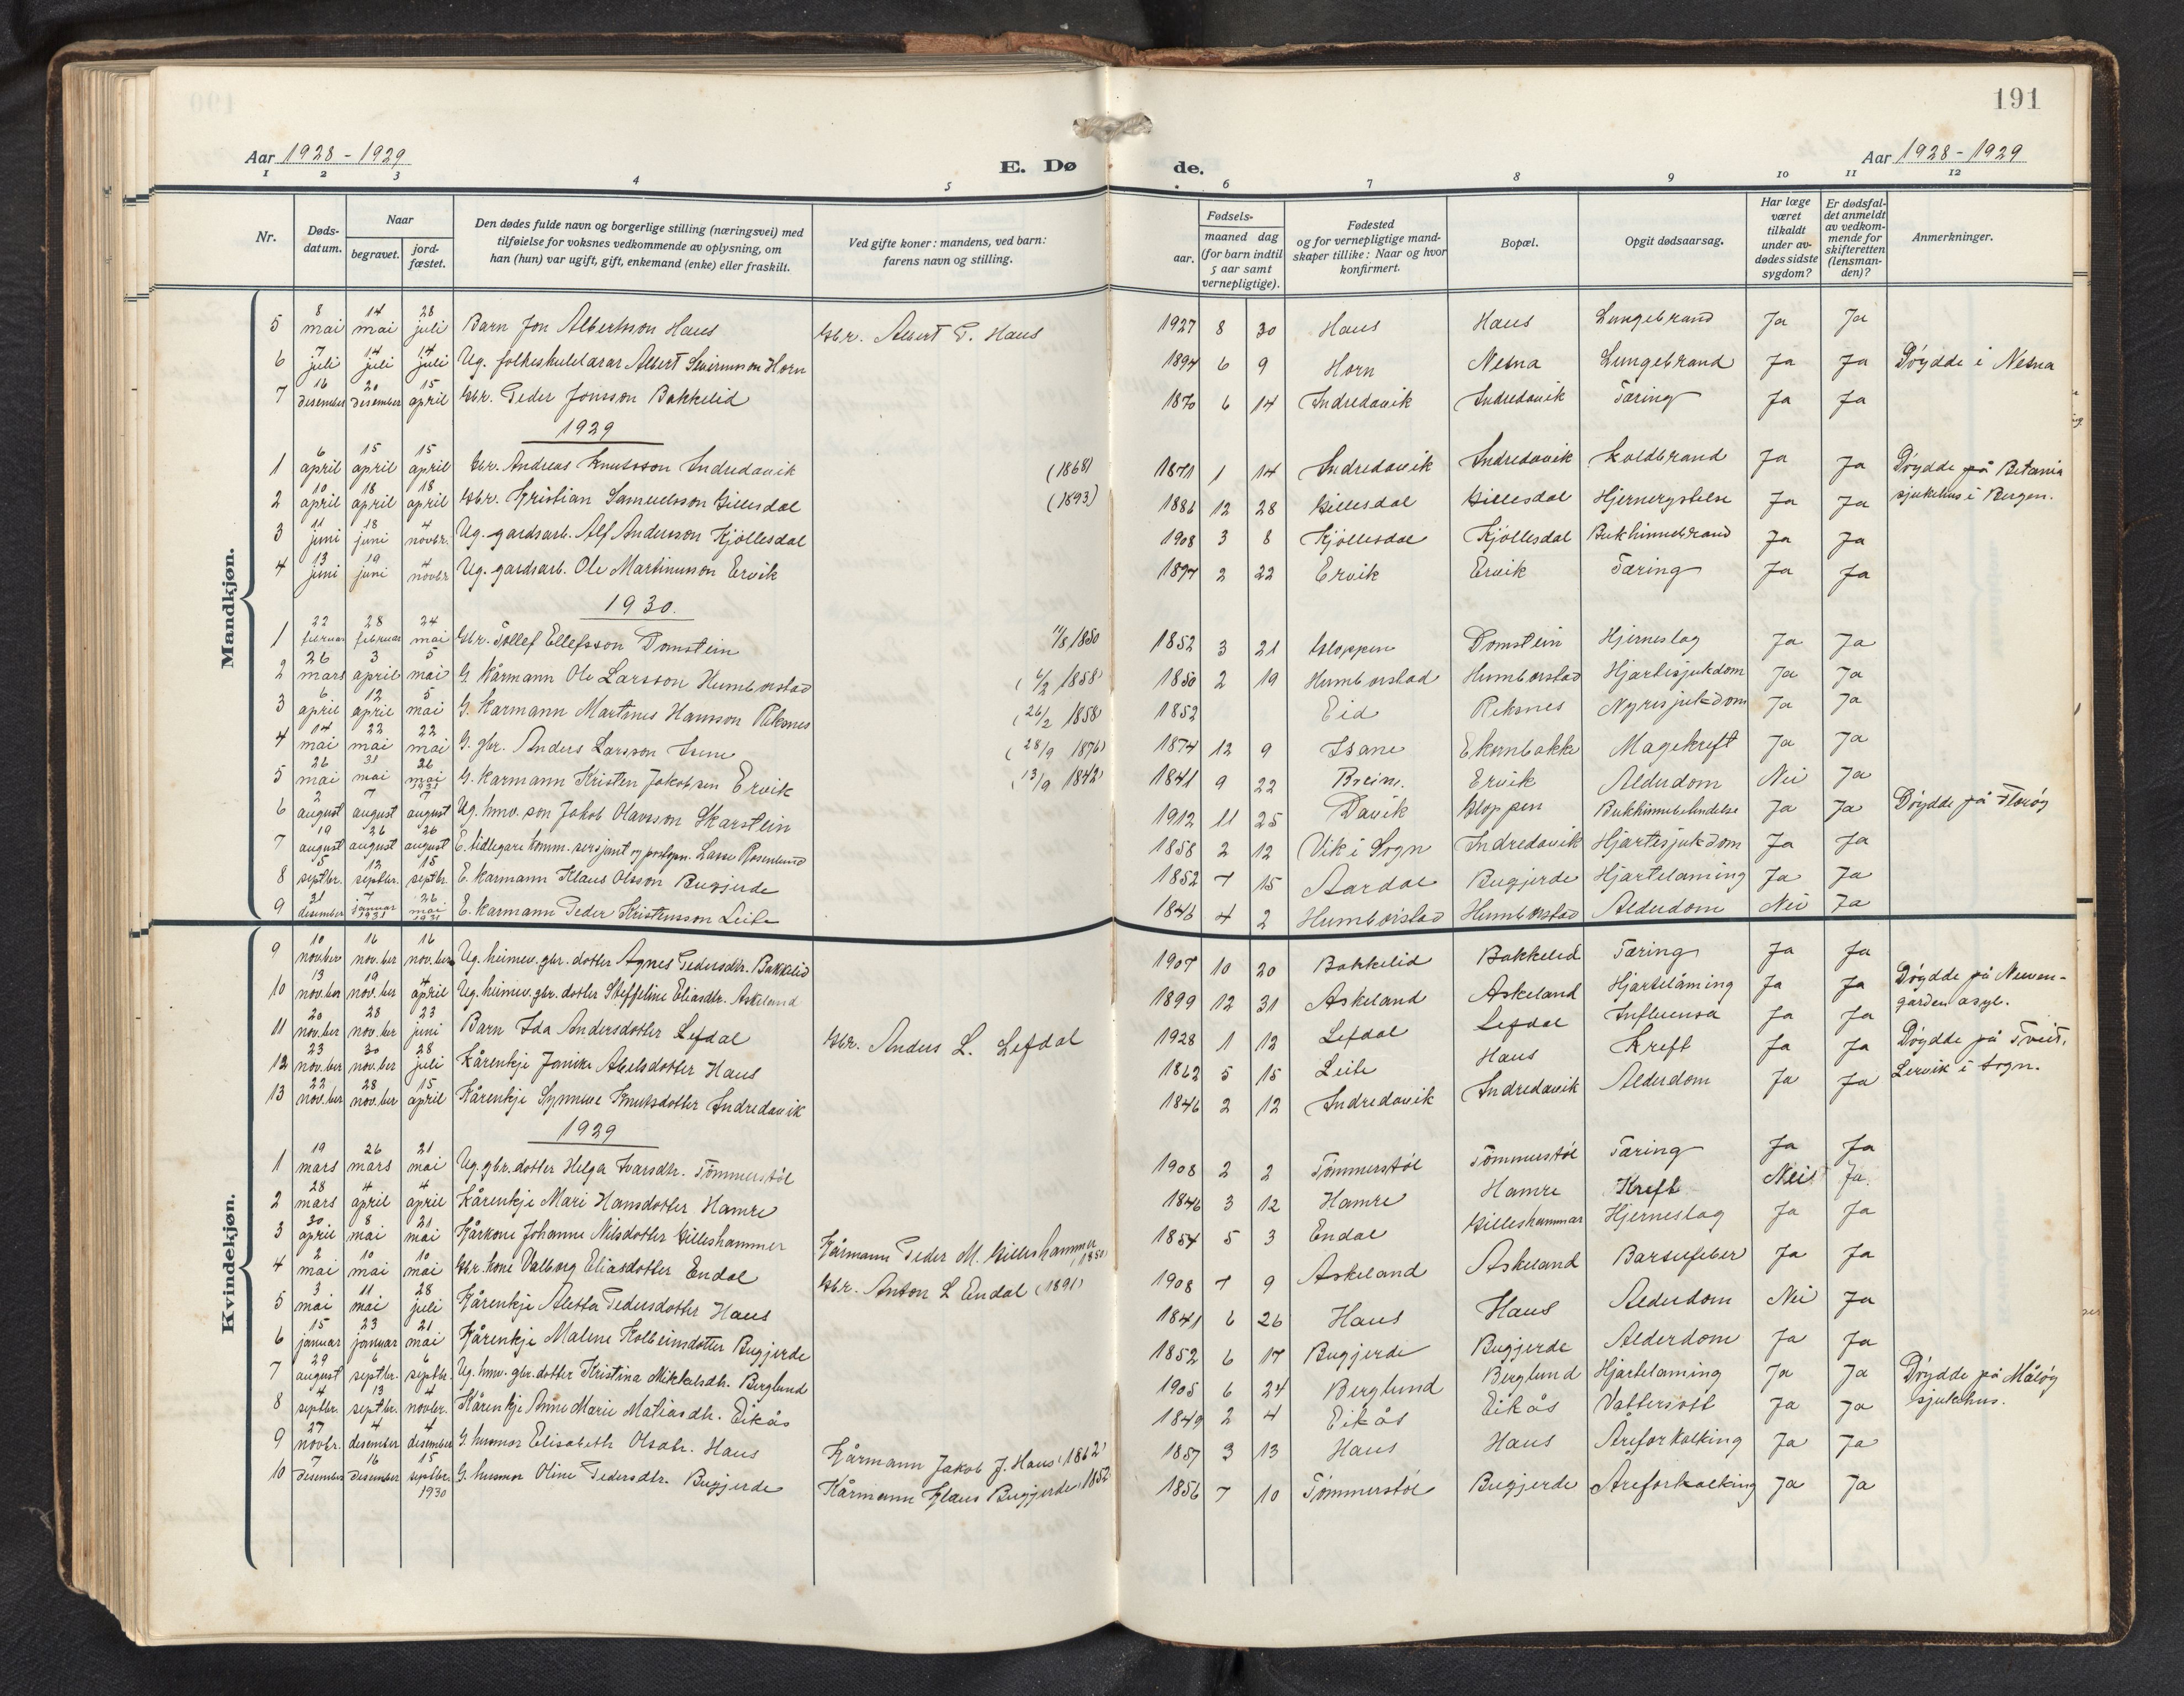 191
Aar 1928 - 1929
E. Døde.
Aar 1928 - 1929
1 2 3 4 5 6 7 8 9 10 11 12
Nr.
Døds-datum.
Naar
begravet.
jord-fæstet.
Den dødes fulde navn og borgerlige stilling (næringsvei) med
tilføielse for voksnes vedkommende av oplysning, om
han (hun) var ugift, gift, enkemand (enke) eller fraskilt.
Ved gifte koner: mandens, ved barn:
farens navn og stilling.
Fødsels-
aar. maaned dag
(for barn indtil
5 aar samt
vernepligtige).
Fødested
og for vernepligtige mand-
skaper tillike: Naar og hvor
konfirmert.
Bopæl.
Opgit dødsaarsag.
Har læge
været
tilkaldt
under av-
dødes sidste
sygdom?
Er dødsfal-
det anmeldt
av vedkom-
mende for
skifteretten
(lensman-
den)?
Anmerkninger.
Mandkjøn.
5 8 mai 14 mai 28 juli Barn Jon Albertsson Haus Gbr. Albert P. Haus 1927 8 30 Haus Haus Lungebrand Ja Ja
6 7 juli 14 juli 14 juli Ug. folkeskulelærar Albert Severinsson Horn 1894 6 9 Horn Nesna Lungebrand Ja Ja Døydde i Nesna
7 16 desember 20 desember 15 april Gbr. Peder Jonsson Bakkelid 1870 6 14 Indredavik Indredavik Tæring Ja Ja
1929
1 6 april 15 april 15 april Gbr. Andreas Knutsson Indredavik (1868) 1871 1 14 Indredavik Indredavik Koldbrand Ja Ja Døydde på Betania sjukehus i Bergen.
2 10 april 18 april 18 april Gbr. Kristian Samuelsson Gillesdal (1893) 1886 12 28 Gillesdal Gillesdal Hjernerystelse Ja Ja
3 11 juni 18 juni 4 novbr. Ug. gardsarb. Alf Andersson Kjøllesdal 1908 3 8 Kjøllesdal Kjøllesdal Bukhinnebrand Ja Ja
4 13 juni 19 juni 4 novbr Ug. gardsarb. Ole Martinusson Ervik 1897 2 22 Ervik Ervik Tæring Ja Ja
1930.
1 22 februar 28 februar 24 mai Gbr. Tollef Ellefsson Domstein 11/8 1850 1852 3 21 Gloppen Domstein Hjerneslag Ja Ja
2 26 mars 3 april 5 mai G. Kårmann Ole Larsson Humborstad 1858 1850 2 19 Humborstad Humborstad Hjartesjukdom Ja Ja
3 6 april 12 april 5 mai G. Karmann Martines Hansson Reksnes (26/2 1858) 1852 Eid Reksnes Nyresjukdom Ja Ja
4 14 mai 22 mai 22 mai G. gbr. Anders Larsson Isene (28/9 1876) 1874 12 9 Isane Ekornbakke Magekreft Ja Ja
5 26 mai 31 mai 26 mai 1931 G. Karmann Kristen Jakobsen Ervik (13/9 1842) 1841 9 22 Breim. Ervik Alderdom Nei Ja
6 2 august 7 august 7 august Ug. hmv. son Jakob Olavsson Skarstein 1912 11 25 Davik Gloppen Bukhinnebetendelse Ja Ja Døydde på Florøy
7 19 august 26 august 26 august E. tidlegare komm. sersjant og postopn. Lasse Rosenlund 1858 2 12 Vik i Sogn Indredavik Hjartesjukdom Ja Ja
8 5 septbr. 12 septbr. 15 septbr. E. Karmann Klaus Olsson Bugjerde 1852 7 15 Aardal Bugjerde Hjartelaming Ja Ja
9 21 desember 7 januar 1931 26 mai 1931 E. Karmann Peder Kristensson Leite 1846 4 2 Humborstad Humborstad Alderdom Nei Ja
Kvindekjøn.
9 10 nov.ber 16 nov.ber 16 nov.ber Ug. heimev. gbr. dotter Agnes Pedersdtr. Bakkelid 1907 10 20 Bakkelid Bakkelid Tæring Ja Ja
10 13 nov.ber 19 nov.ber 4 april Ug. heimev. gbr. dotter Steffeline Eliasdtr. Askeland 1899 12 31 Askeland Askeland Hjartelåming Ja Ja Døydde på Neven-garden asyl.
11 20 nov.ber 28 nov.ber 23 juni Barn Ida Andersdotter Lefdal Gbr. Anders L. Lefdal 1928 1 12 Lefdal Lefdal Influensa Ja Ja
12 23 nov.ber 30 nov.ber 28 juli Kårenkje Janike Abelsdotter Haus 1862 5 15 Leite Haus Kreft Ja Ja Døydde på Tveit, Lervik i Sogn.
13 22 nov.ber 28 nov.ber 15 april Kårenkje Synneve Knutsdotter Indredavik 1846 2 12 Indredavik Indredavik Alderdom Ja Ja
1929
1 19 mars 26 mars 21 mai Ug. gbr. dotter Helga Ivarsdtr. Tømmerstøl 1908 2 2 Tømmerstøl Tømmerstøl Tæring Ja Ja
2 28 mars 4 april 4 april Kårenkje Mari Hansdotter Hamre 1846 3 12 Hamre Hamre Kreft Nei Ja.
3 30 april 8 mai 21 mai Kårkone Johanne Nilsdotter Gilleshammer Kårmann Peder M. Gilleshammer, 1850 1854 5 3 Endal Gilleshammar Hjerneslag Ja Ja
4 2 mai 10 mai 10 mai Gbr. kone Valborg Eliasdotter Endal Gbr. Anton L Endal (1891) 1908 7 9 Askeland Askeland Barselfeber Ja Ja
5 3 mai 11 mai 28 juli Kårenkje Aletta Pedersdotter Haus 1841 6 26 Haus Haus Alderdom Nei Ja
6 15 januar 23 januar 21 mai Kårenkje Malene Kolbeinsdotter Bugjerde 1852 6 17 Bugjerde Bugjerde Alderdom Ja Ja
7 29 august 6 septbr. 6 septbr. Ug. hmv. gbr. dotter Kristina Mikkelsdtr. Berglund 1905 6 24 Berglund Berglund Hjartelaming Ja Ja Døydde på Måløy sjukehus.
8 4 septbr. 13 septbr. 4 novbr. Kårenkje Anne Marie Matiasdtr. Eikås 1849 2 4 Eikås Eikås Vattersott Ja Ja
9 27 novbr. 4 desember 4 desember G. husmor Elisabeth Olsdtr. Haus Kårmann Jakob J. Haus (1862) 1857 3 13 Haus Haus Åreforkalking Ja Ja
10 7 desember 16 desember 15 septbr. 1930 G. husmor Oline Pedersdtr. Bugjerde Kårmann Klaus Bugjerde, 1852 1856 7 10 Tømmerstøl Bugjerde Åreforkalking Ja Ja